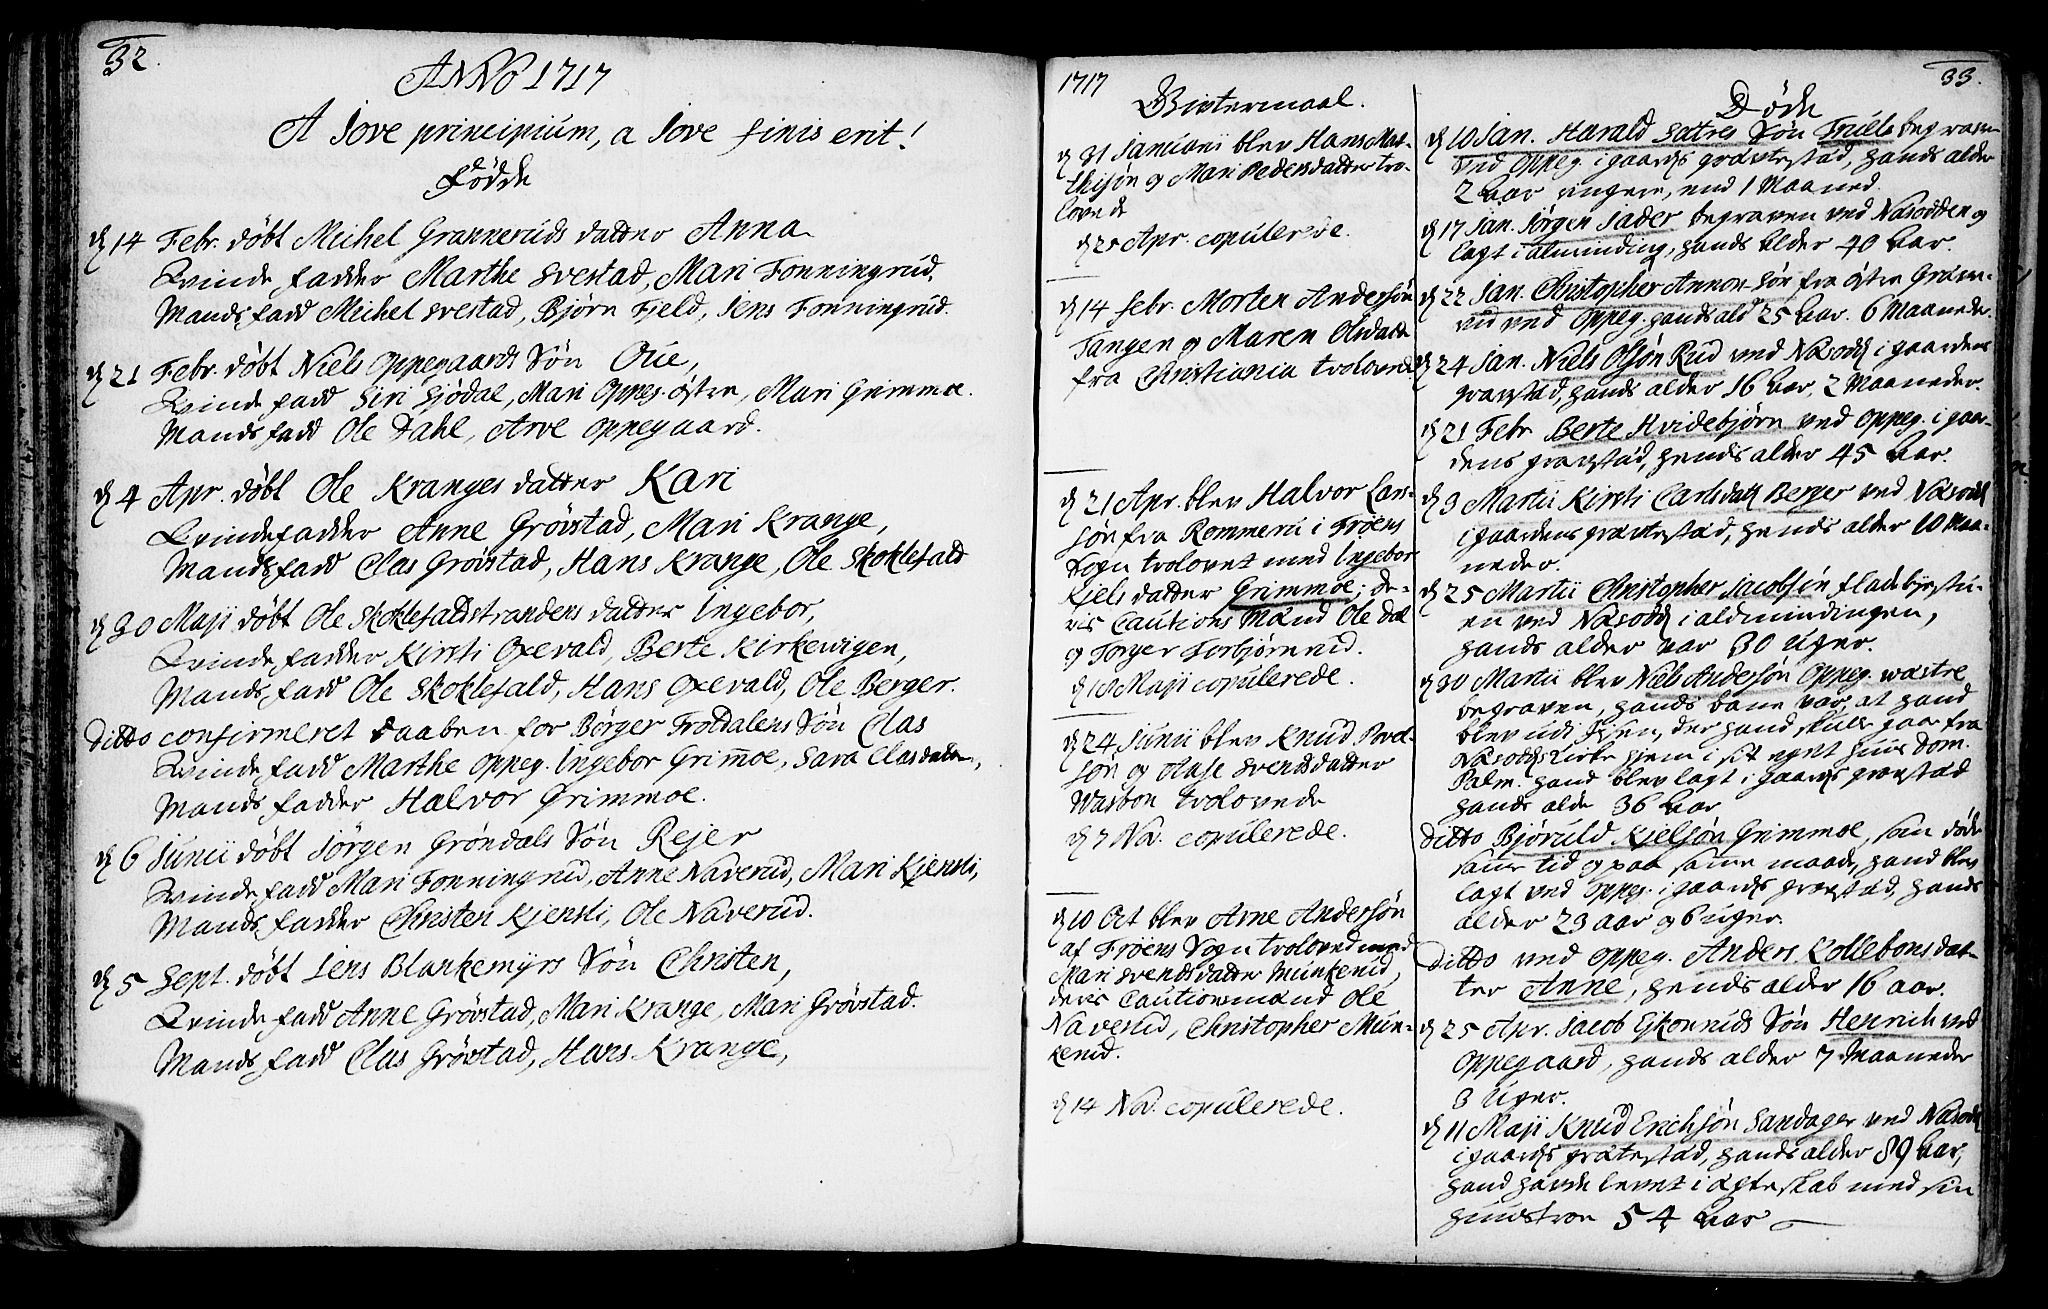 32.
ANNO 1717
A Jove principium, a Jove finis erit!
Fødde
d 14 Febr. døbt Michel Granneruds datter Anna
Qvinde fadder Marthe Svestad, Mari Fonningrud.
Mands fadd Michel Svestad, Bjørn Fjeld, Jens Fonningrud.
d 21 Febr. døbt Niels Oppegaards Søn Oue,
Qvinde fadd Siri Sjødal, Mari Oppeg. østre, Mari Grimmoe.
Mands fadd Ole Dahl, Arve Oppegaard.
d 4 Apr. døbt Ole Kranges datter Kari
Qvindefadder Anne Grøvstad, Mari Krange,
Mands fadd Clas Grøvstad, Hans Krange, Ole Skoklefald
d 30 Maji døbt Ole Skoklefaldstrandens datter Ingebor,
Qvinde fadder Kirsti Oxevald, Berte Kirkevigen,
Mands fadd Ole Skoklefald, Hans Oxevald, Ole Berger.
Ditto confirmeret daaben for Børger Froldalens Søn Clas
Qvinde fadd Marthe Oppeg. Ingebor Grimmoe, Sara Clasdatter,
Mands fadder Halvor Grimmoe.
d 6 Junii døbt Jørgen Grøndals Søn Rejer
Qvinde fadd Mari Fonningrud, Anne Naverud, Mari Kjensli,
Mands fadder Christen Kjensli, Ole Naverud.
d 5 Sept. døbt Jens Blankemyrs Søn Christen,
Qvinde fadd Anne Grøvstad, Mari Krange, Mari Grøvstad.
Mands fadd Clas Grøvstad, Hans Krange,
1717
Bivtermaal.
d 31 Januarii blev Hans Mat-
thisøn og Mari Pedersdatter tro-
lovede
d 25 Apr. copulerede.
d 14 febr. Morten Andersøn
Tangen og Maren Olsdatt
fra Christiania trolovede
d 21 Apr. blev Halvor Lars-
søn fra Rommerud i Frøens
Sogn trolovet med Ingebor
Kjels datter Grimmoe; de-
ris Cautions Mænd Ole Dal
og Torger Torbjørnrud.
d 18 Maji copulerede.
d 24 Junii blev Knud Povel-
søn og Aase Svendsdatter
Warbon trolovede
d 7 Nov. copulerede.
d 10 Oct blev Arne Andersøn
af Frøens Sogn troloved med
Mari Svendsdatter Munkerud,
deris Cautionsmænd Ole
Naverud, Christopher Mun-
kerud.
d 14 Nov. copulerede.
33.
Døde
d 10 Jan. Harald Sætres Søn Truels begraven
ved Oppeg. i gaards gravsted, hands alder
2 Aar ringere, end 1 Maaned.
d 17 Jan. Jørgen Jader begraven ved Næsodden og
lagt i alminding, hands Alder 40 Aar.
d 22 Jan. Christopher Annon søn fra østre Græsn-
rud ved Oppeg. hands ald 25 Aar. 6 Maaneder.
d 24 Jan. Niels Olsøn Rud ved Næsodd i gaardens
gravsted, hands alder 16 Aar, 2 Maaneder.
d 21 Febr Berte Hvidebjørn ved Oppeg. i gaar-
dens gravsted, hends alder 45 Aar.
d 3 Martii Kirsti Carlsdatt Berger ved Næsodd
i gaardens gravested, hends alder 10 Maa-
neder.
d 25 Martii Christopher Jacobsøn Fladebystu-
en ved Næsodd i aldmindingen,
hands alder var 30 Uger.
d 30 Martii blev Niels Andersøn Oppeg. wæstre
begraven, hands bane var, at hand
blev udi Isen, der hand skulle gaa fra
Næsodds Kirke hjem i sit eget huus Dom.
Palm. hand blev lagt i gaards gravsted
hands alde 36 Aar
Ditto Bjøruld Kjelsøn Grimmoe, som døde
samme tid og paa samme maade, hand blev
lagt ved Oppeg. i gaards gravsted, hands
alder 23 aar og 6 uger.
Ditto ved Oppeg. Anders Kollebons dat-
ter Anne, hends alder 16 aar.
d 25 Apr. Jacob Ejkorruds Søn Henrich ved
Oppegaard, hands alder 7 Maaneder
3 Uger.
d 11 Maji Knud Erichsøn Sandager ved Næsodd
i gaards gravested, hands alder 89 Aar,
hand havde levet i ægteskab med sin
hustroe 54 Aar